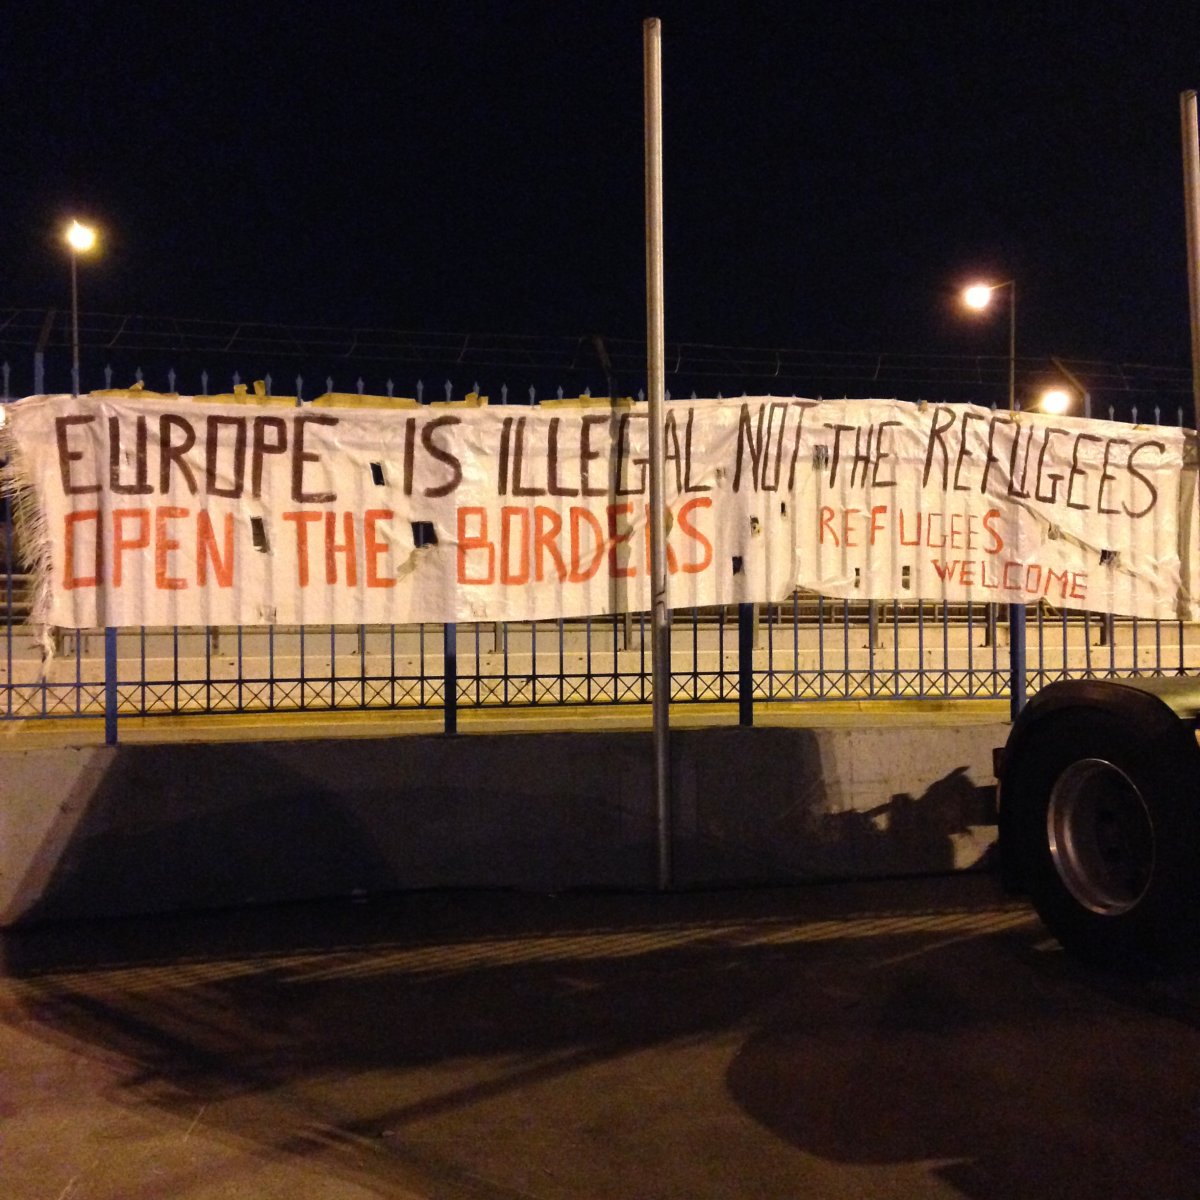 EUROPE IS ILLEGAL NOT THE REFUGEES
OPEN THE BORDERS
REFUGEES
WELCOME